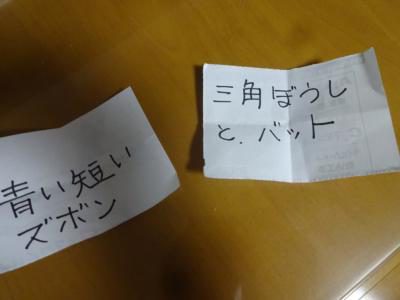 三角ぼうし
と.バット
青い短い
ズボン